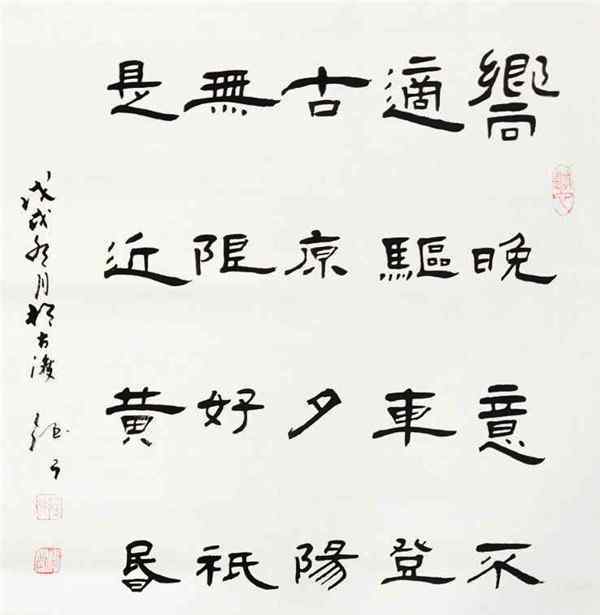 嚮晚意不
適驅車登
古原夕陽
無限好祇
是近黄昏
戊戌月於